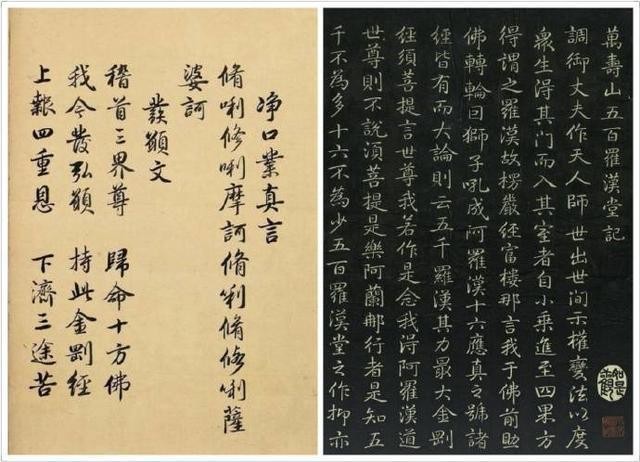 淨口業真言
脩唎修唎摩訶脩唎脩修唎薩
婆訶
發願文
稽首三界尊 歸命十方佛
我今發弘願 持此金剛經
上報四重恩 下濟三途苦
萬壽山五百羅漢堂記
調御丈夫作天人師世出世間示權變法以度
衆生得其門而入其室者自小乗進至四果方
得謂之羅漢故楞嚴經富樓那言我于佛前助
佛轉輪因獅子吼成阿羅漢十六應真之號諸
經皆有而大論則云五千羅漢其力最大金剛
經須菩提言世尊我若作是念我得阿羅漢道
世尊則不說須菩提是樂阿蘭那行者是知五
千不為多十六不為少五百羅漢堂之作抑亦
如是觀